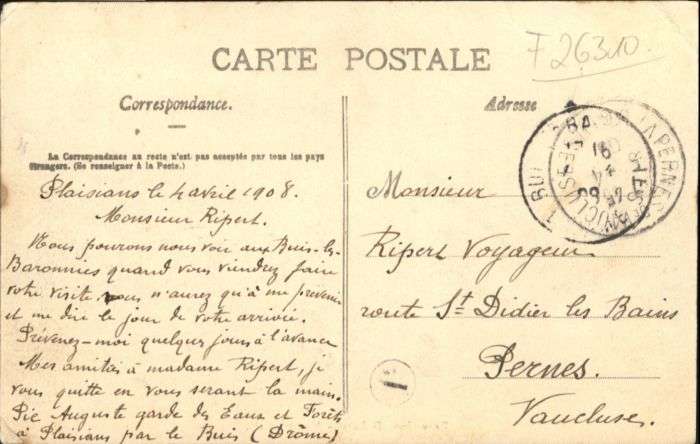 F 26310.
CARTE POSTALE
Correspondance.
La Correspondance au recto n'est pas acceptée par tous les pays
étrangers. (Se renseigner à la Poste.)
Plaisians le 4 avril 1908.
Monsieur Ripert.
Nous pouvons nous voir aux Buis-les-
Baronnies quand vous viendrez faire
votre visite vous n'aurez qu'à me prévenir
et me dire le jour de votre arrivée.
Prévenez-moi quelques jours à l'avance
Mes amitiés à madame Ripert, je
vous quitte en vous serant la main.
Pic Auguste garde des Eaux et Forêts
à Plaisians par le Buis (Drôme)
Adresse
Monsieur
Ripert Voyageur
route St Didier les Bains
Pernes.
Vaucluse.
PERNES
VAUCLUSE
1